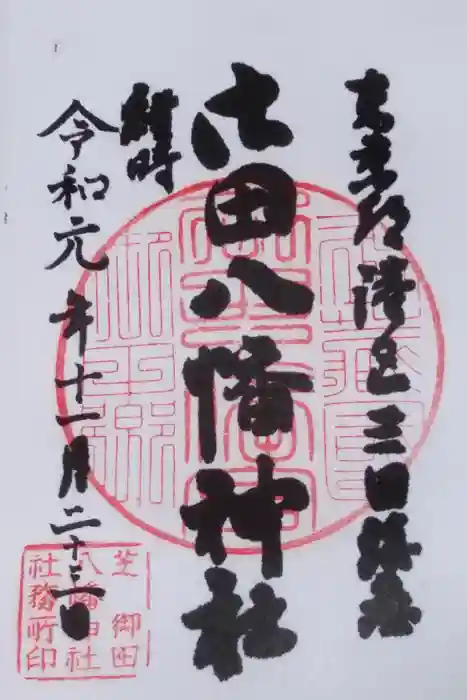 東京都港区三田鎮座
御田八幡神社
于時
令和元年十一月二十三日
芝御田
八幡神社
社務所印